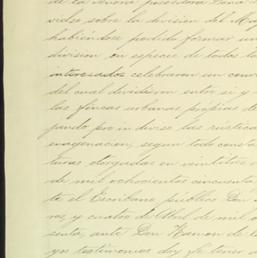 de la
sobre la division del
habiendose podido formar un
division en especie de todos lo
interesados celebraron un conv
del cual dividieron entre si y
las fincas urbanas propias de
pro indiviso las rusticas
enagenacion, segun todo consta
turas otorgadas en veintidos
de mil ochocientos cincuenta
te el Escribano público Don
y cuatro de Abril de mil o
senta, ante Don Ramon de
yos testimonios doy fe tener a